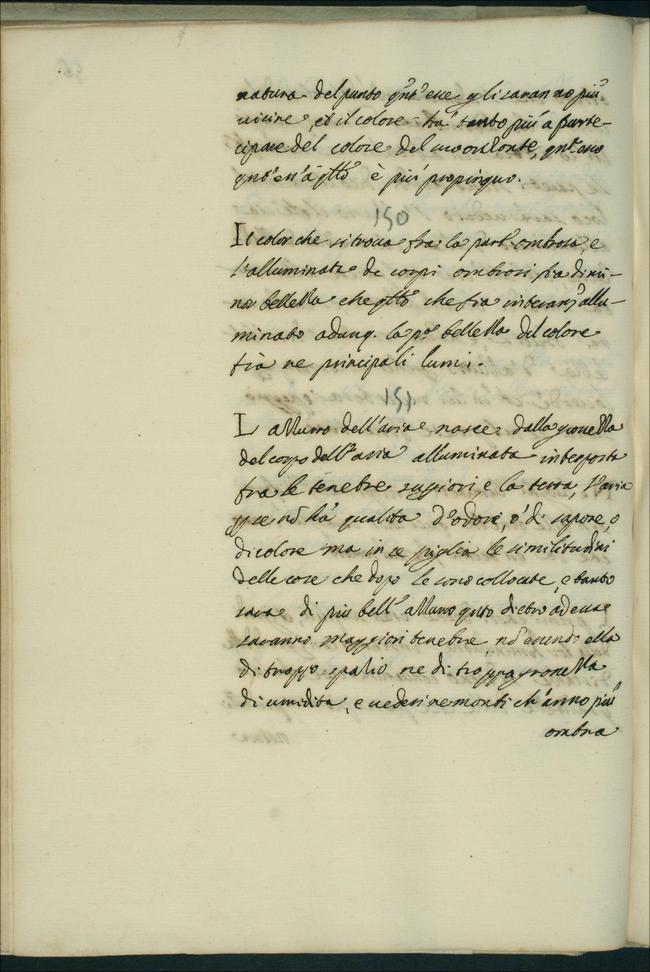 natura del punto qnt'esse gli saranno più
vicine, et il colore ha tanto più a parte-
cipare del colore del suo orizonte, qnto esso
a qllo è più propinquo.
150
Il color che si trova fra la part' ombrosa, e
l'alluminata de corpi ombrosi fia di mi-
nor bellezza che qllo che fia interam.te allu-
minato adunq. la p.a bellezza del colore
fia ne principali lumi.
151
L azzurro dell'aria nasce dalla grossezza
del corpo dell'aria alluminata interposta
fra le tenebre superiori, e la terra, l'aria
p se nō hà qualita d'odori, ò di sapore, o
di colore ma in se piglia le similitudini
delle cose che dopo le sono collocate, e tanto
sara di piu bell' azzurro qnto dietro ad essa
saranno maggiori tenebre nō essendo ella
di troppo spatio ne di troppa grossezza
di umidita, e vedesi ne monti ch'anno più
ombra